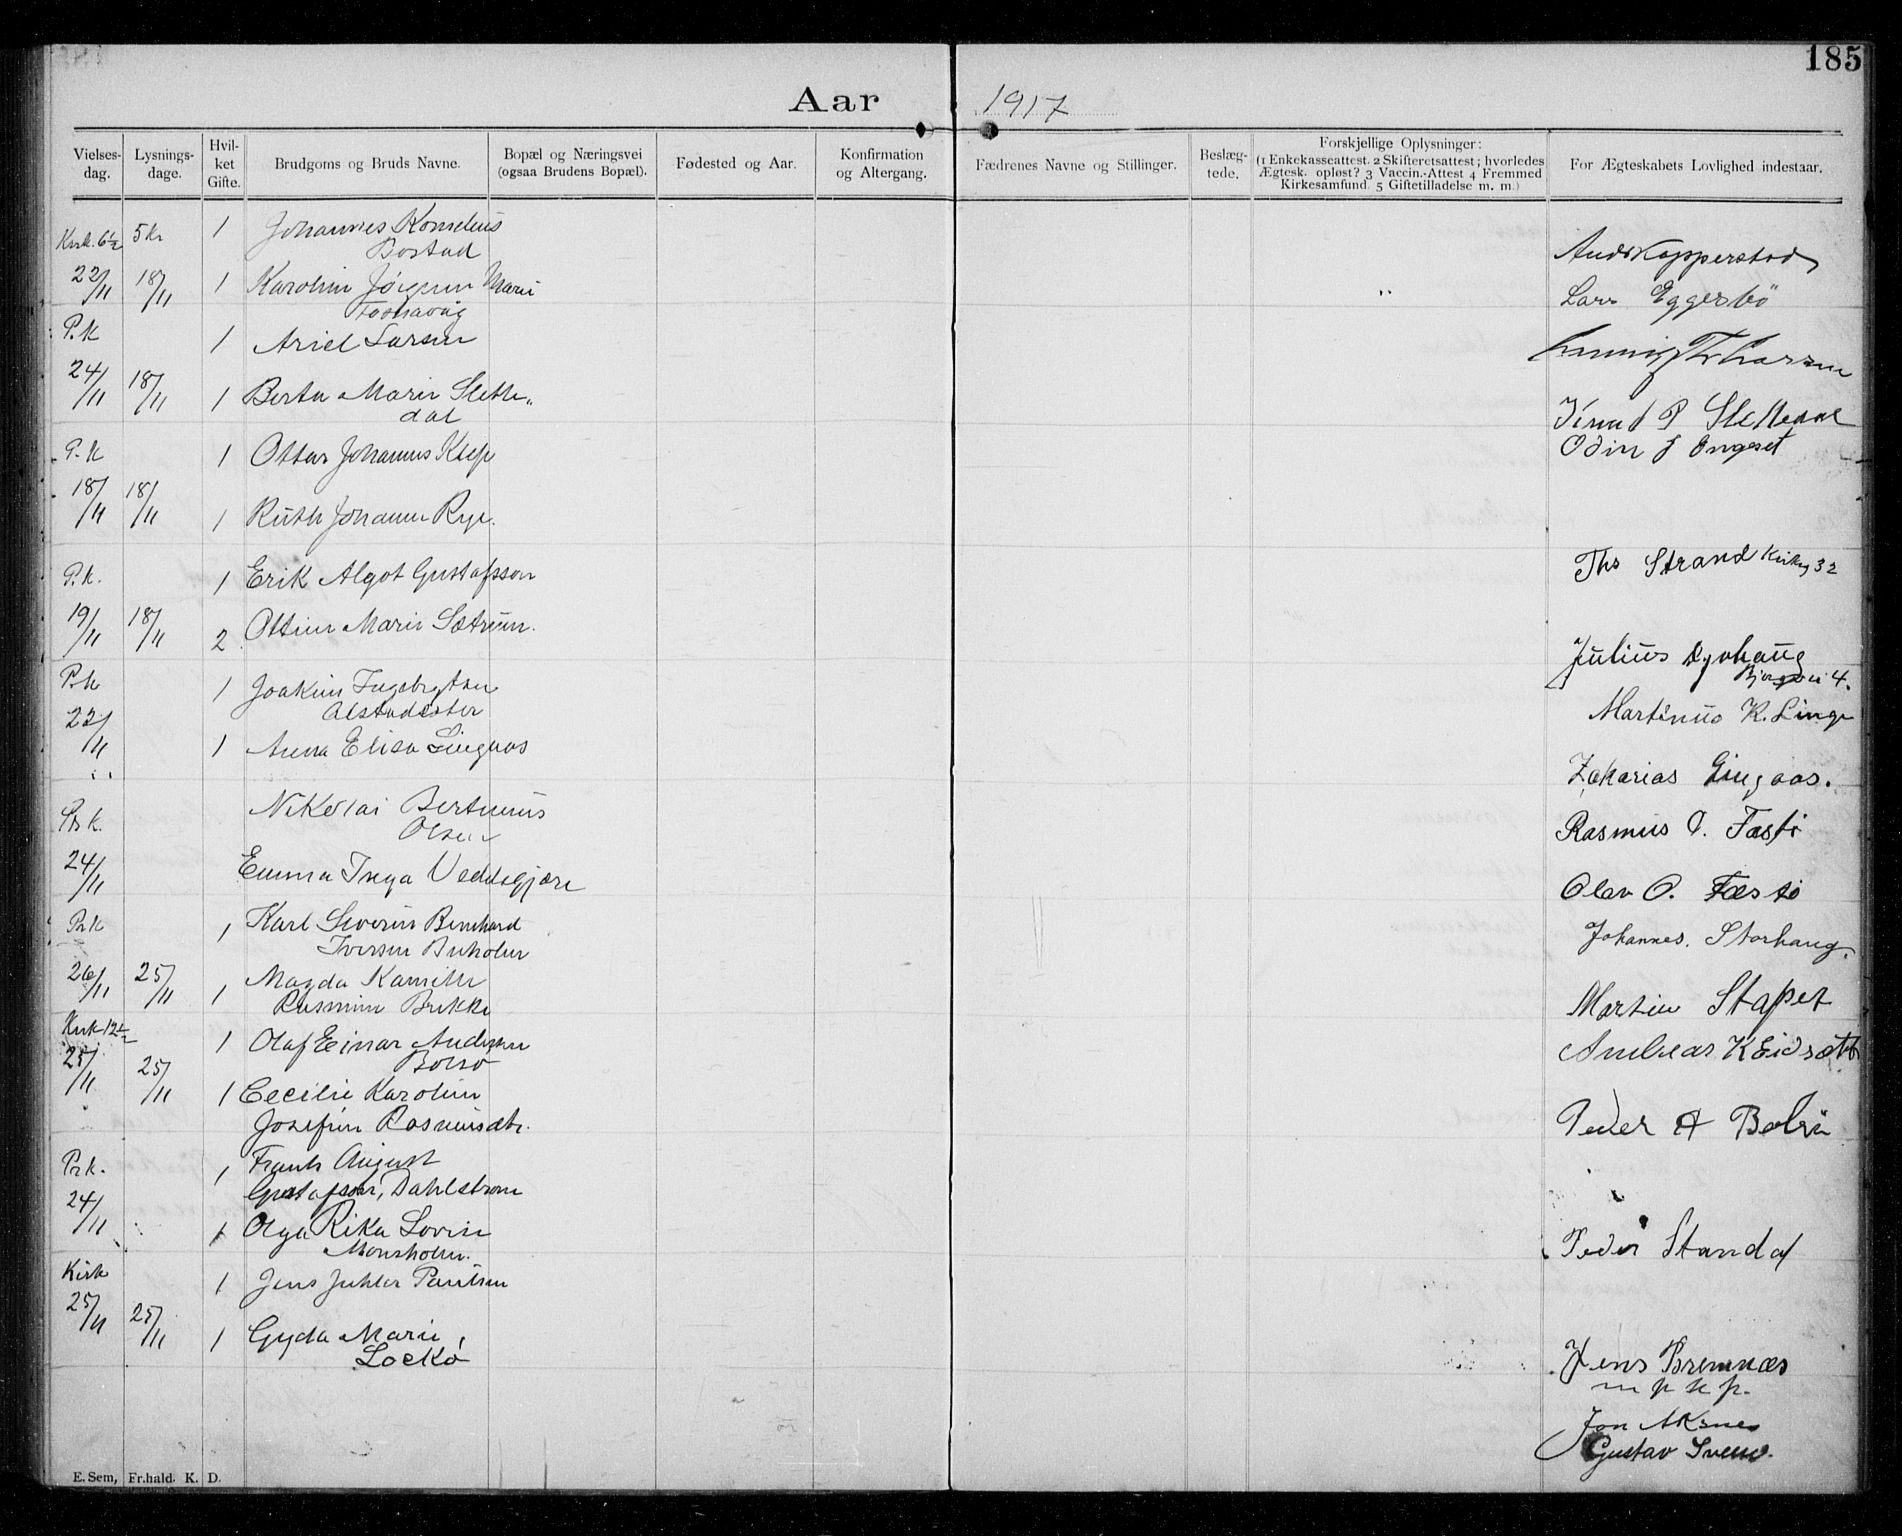 185
Aar 1917
Vielses-dag.
Lysnings-dage.
Hvil-ket Gifte.
Brudgoms og Bruds Navne.
Bopæl og Næringsvei
(ogsaa Brudens Bopæl).
Fødested og Aar.
Konfirmation
og Altergang.
Fædrenes Navne og Stillinger.
Beslæg-tede.
Forskjellige Oplysninger:
(1 Enkekasseattest. 2 Skifteretsattest; hvorledes
Ægtesk. opløst? 3 Vaccin.-Attest 4 Fremmed
Kirkesamfund. 5 Giftetilladelse m. m.)
For Ægteskabets Lovlighed indestaar.
Kirk. 6½ 5kr 1 Johannes Kornelius
Bostad
22/11 18/11 1 Karolin Jørgine Marie
Lars Eggesbö
P.k 1 Ariel Larsen
24/11 18/11 1 Berta Marie Slette-
dal
Knud P Slettedal
P.k 1 Ottar Johannes Klep
Odin J Engeset
18/11 18/11 1 Ruth Johanne Rye.
P.k. 1 Erik Algot Gustafsson
Ths Strand Kirkeg 32
19/11 18/11 2 Ottine Marie Sætrum.
Julius Dyvhaug
4.
P.k 1 Joakim Ingebrigtsen
Alstadsæter
Martinus K. Linge
22/11 1 Anna Elisa Lingaas
Zakarias Lingaas.
Pr k. Nikolai Bertinius
Olsen
Rasmus O. Fæstö
24/11 Emma Inga Veddegjære
Olav O. Fæstö
Pr k 1 Karl Severin Bernhard
Iversen Buholm
Johannes. Storhaug.
26/11 25/11 1 Magda Kamille
Rasmine Brekke
Martin Stapet
Kirk 12½ 1 Olaf Einar Andersen
Bolsø
Andreas K Eidsæth
25/11 25/11 1 Cecilie Karoline
Josefine Rasmusdtr.
Peder A Bolsö
Prk. 1 Frants August
Gustafson, Dahlstrøm
24/11 1 Olga Rika Lovise
Monsholm.
Peder Standal
Kirk 1 Jens Juhler Paulsen
25/11 25/11 1 Gyda Marie
Jens Bremnæs
m p k p.
Jon Aksnes
Gustav
E. Sem, Fr.hald. K. D.